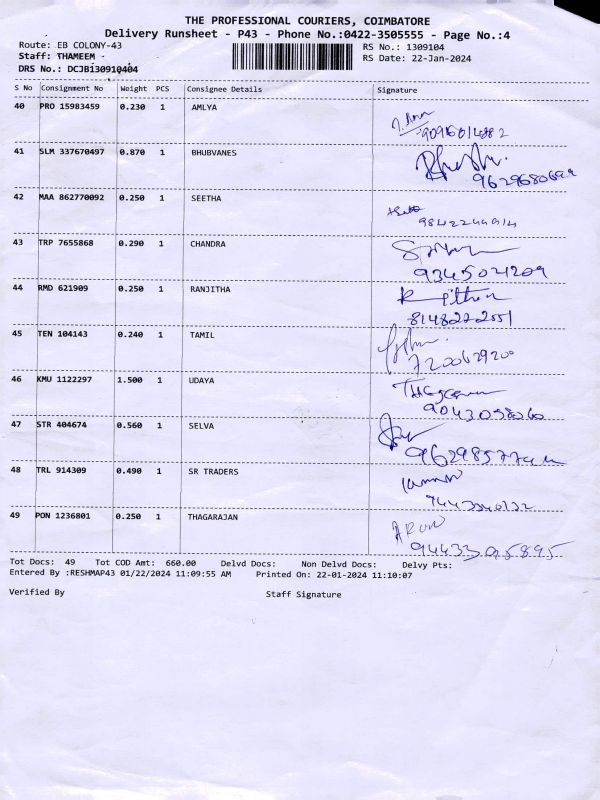 THE PROFESSIONAL COURIERS, COIMBATORE
Delivery Runsheet - P43 - Phone No.:0422-3505555 - Page No.:4
Route: EB COLONY-43 RS No.: 1309104
Staff: THAMEEM RS Date: 22-Jan-2024
DRS No.: DCJB130910404
S No Consignment No Weight PCS Consignee Details Signature
40 PRO 15983459 0.230 1 AMLYA
41 SLM 337670497 0.870 1 BHUBVANES
42 MAA 862770092 0.250 1 SEETHA
43 TRP 7655868 0.290 1 CHANDRA
9345021209
44 RMD 621909 0.250 1 RANJITHA
45 TEN 104143 0.240 1 TAMIL
7200629200
46 KMU 1122297 1.500 1 UDAYA
47 STR 404674 0.560 1 SELVA
48 TRL 914309 0.490 1 SR TRADERS
49 PON 1236801 0.250 1 THAGARAJAN
ARUN
Tot Docs: 49 Tot COD Amt: 660.00 Delvd Docs: Non Delvd Docs: Delvy Pts:
Entered By :RESHMAP43 01/22/2024 11:09:55 AM Printed On: 22-01-2024 11:10:07
Verified By Staff Signature